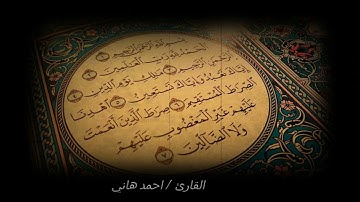 بِسْمِ اللَّهِ الرَّحْمَٰنِ الرَّحِيمِ ١
الْحَمْدُ لِلَّهِ رَبِّ الْعَالَمِينَ ٢
الرَّحْمَٰنِ الرَّحِيمِ ٣ مَالِكِ يَوْمِ الدِّينِ ٤
إِيَّاكَ نَعْبُدُ وَإِيَّاكَ نَسْتَعِينُ ٥ اهْدِنَا
الصِّرَاطَ الْمُسْتَقِيمَ ٦ صِرَاطَ الَّذِينَ أَنْعَمْتَ
عَلَيْهِمْ غَيْرِ الْمَغْضُوبِ عَلَيْهِمْ
وَلَا الضَّالِّينَ ٧
القارئ / احمد هاني